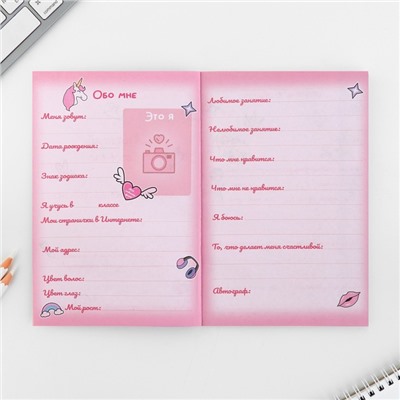 Обо мне
Это я
Меня зовут:
Дата рождения:
Знак зодиака:
Я учусь в классе
Мои странички в Интернете:
Мой адрес:
Цвет волос:
Цвет глаз:
Мой рост:
Любимое занятие:
Нелюбимое занятие:
Что мне нравится:
Что мне не нравится:
Я боюсь:
То, что делает меня счастливой:
Автограф: